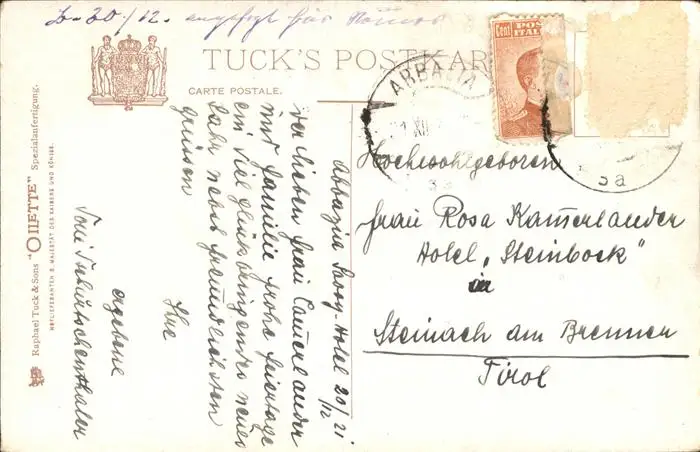 20/12.
TUCK'S POSTKAR
CARTE POSTALE.
Raphael Tuck & Sons "OILETTE" Spezialanfertigung.
HOFLIEFERANTEN S. MAJESTÄT DES KAISERS UND KÖNIGS.
Cent
POS
ITAL
ABBAZIA
XII
Abbazia Savoy-Hotel 20/12 21
der lieben Frau Camerlander
mit Familie frohe Feiertage
ein viel glückbringendes neues
Jahr nebst freundlichsten
Grüssen
Ihre
ergebene
Toni Tschurtschenthaler
Hochwohlgeboren
Frau Rosa Kamerlander
Hotel „Steinbock"
in
Steinach am Brenner
Tirol